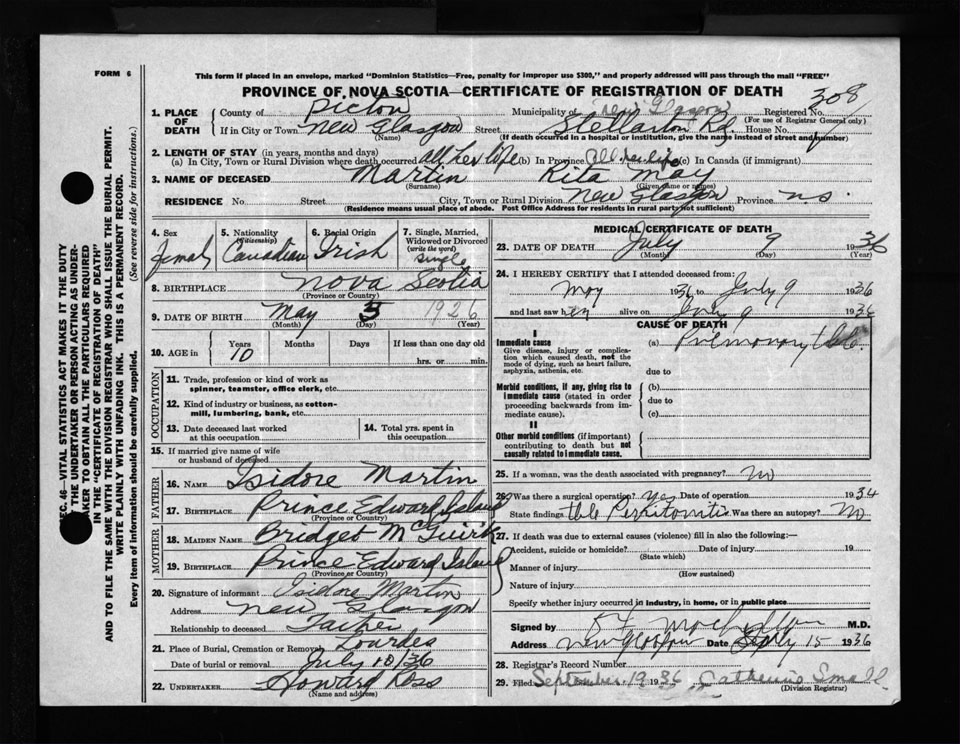 FORM 6
This form if placed in an envelope, marked "Dominion Statistics—Free, penalty for improper use $300," and properly addressed will pass through the mail "FREE"
PROVINCE OF NOVA SCOTIA—CERTIFICATE OF REGISTRATION OF DEATH
308
1. PLACE OF DEATH County of Pictou Municipality of New Glasgow Registered No.
(For use of Registrar General only)
If in City or Town New Glasgow Street Stellarton Rd House No.
(Name) (If death occurred in a hospital or institution, give the name instead of street and number)
2. LENGTH OF STAY (in years, months and days)
(a) In City, Town or Rural Division where death occurred all her life (b) In Province all her life (c) In Canada (if immigrant)
3. NAME OF DECEASED Martin Rita May
(Surname) (Given name or names)
RESIDENCE No. Street City, Town or Rural Division New Glasgow Province NS.
(Residence means usual place of abode. Post Office Address for residents in rural parts not sufficient)
4. Sex Female
5. Nationality (Citizenship) Canadian
6. Racial Origin Irish
7. Single, Married, Widowed or Divorced (write the word) single
8. BIRTHPLACE Nova Scotia
(Province or Country)
9. DATE OF BIRTH May 5 1926
(Month) (Day) (Year)
10. AGE in Years 10 Months Days If less than one day old
hrs. or min.
OCCUPATION
11. Trade, profession or kind of work as spinner, teamster, office clerk, etc.
12. Kind of industry or business, as cotton-mill, lumbering, bank, etc.
13. Date deceased last worked at this occupation
14. Total yrs. spent in this occupation
15. If married give name of wife or husband of deceased
FATHER
16. NAME Isidore Martin
17. BIRTHPLACE Prince Edward Island
(Province or Country)
MOTHER
18. MAIDEN NAME Bridget McGuirk
19. BIRTHPLACE Prince Edward Island
(Province or Country)
20. Signature of informant Isidore Martin
Address New Glasgow
Relationship to deceased Father
21. Place of Burial, Cremation or Removal Lourdes
Date of burial or removal July 10/36
22. UNDERTAKER Howard Ross
(Name and address)
MEDICAL CERTIFICATE OF DEATH
23. DATE OF DEATH July 9 1936
(Month) (Day) (Year)
24. I HEREBY CERTIFY that I attended deceased from:
May 1936 to July 9 1936
and last saw her alive on July 9 1936
CAUSE OF DEATH
I
Immediate cause
Give disease, injury or complication which caused death, not the mode of dying, such as heart failure, asphyxia, asthenia, etc.
(a) Pulmonary tbc.
due to
Morbid conditions, if any, giving rise to immediate cause (stated in order proceeding backwards from immediate cause).
(b)
due to
(c)
II
Other morbid conditions (if important) contributing to death but not causally related to immediate cause.
25. If a woman, was the death associated with pregnancy? No
26. Was there a surgical operation? yes Date of operation 1934
State findings tbc Peritonitis Was there an autopsy? No
27. If death was due to external causes (violence) fill in also the following:—
Accident, suicide or homicide? Date of injury 19
(State which)
Manner of injury
(How sustained)
Nature of injury
Specify whether injury occurred in industry, in home, or in public place
Signed by M.D.
Address New Glasgow Date 15 1936
28. Registrar's Record Number
29. Filed September 19 1936 Catherine Small
(Division Registrar)
SEC. 46—VITAL STATISTICS ACT MAKES IT THE DUTY
OF THE UNDERTAKER OR PERSON ACTING AS UNDERTAKER TO OBTAIN ALL THE PARTICULARS REQUIRED
IN THE "CERTIFICATE OF REGISTRATION OF DEATH"
AND TO FILE THE SAME WITH THE DIVISION REGISTRAR WHO SHALL ISSUE THE BURIAL PERMIT.
WRITE PLAINLY WITH UNFADING INK. THIS IS A PERMANENT RECORD.
Every item of information should be carefully supplied. (See reverse side for instructions.)